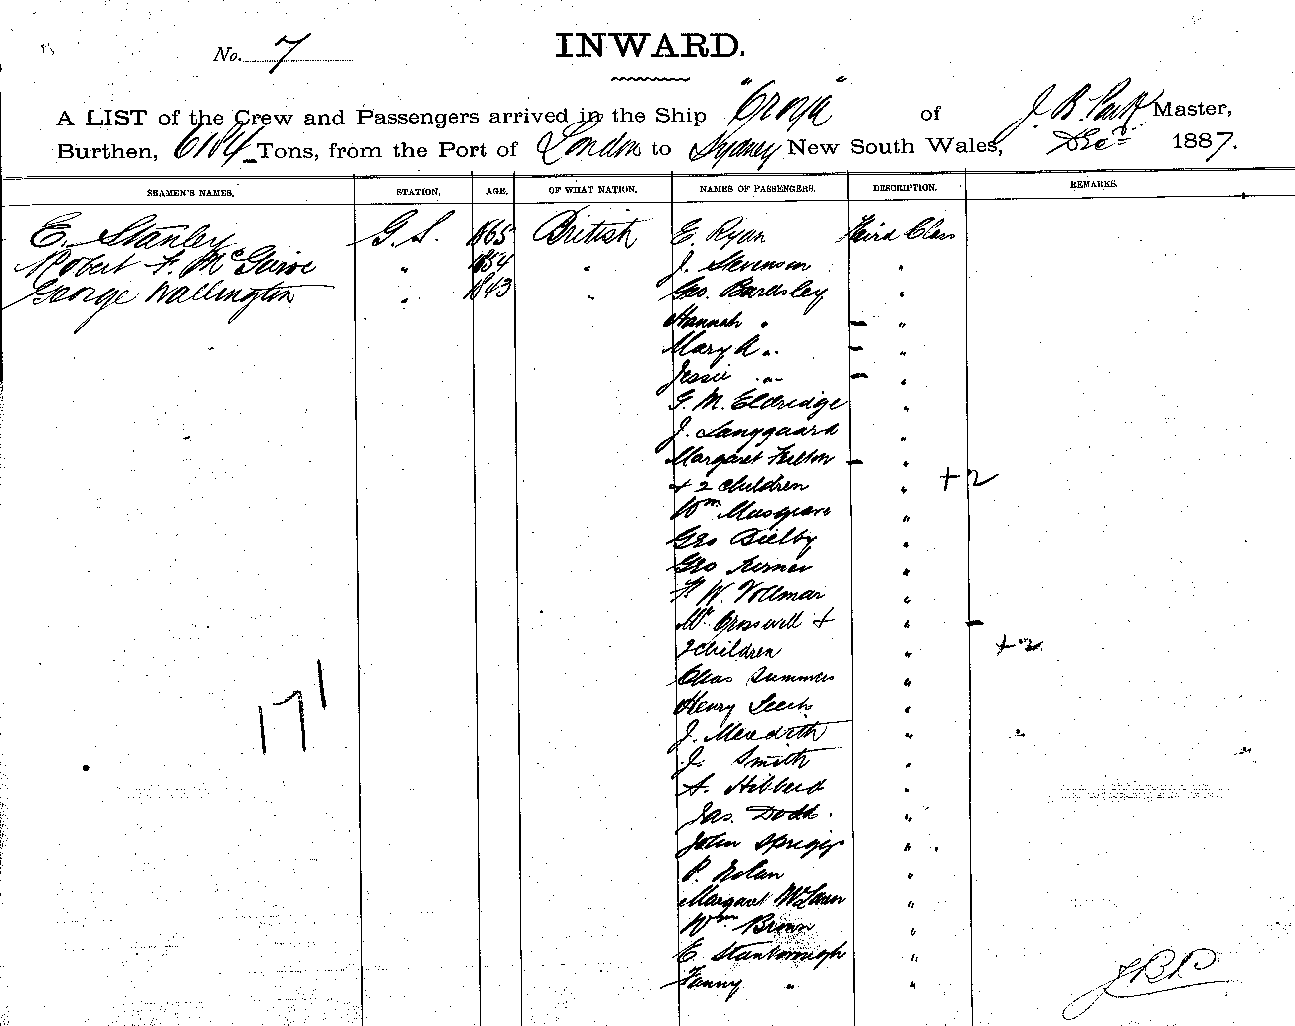 No. 7
INWARD.
A LIST of the Crew and Passengers arrived in the Ship "Oroya" of J. B. Park Master,
Burthen, 6184 Tons, from the Port of London to Sydney New South Wales, Dec 1887.
SEAMEN'S NAMES. STATION. AGE. OF WHAT NATION. NAMES OF PASSENGERS. DESCRIPTION. REMARKS.
E. Stanley G.S. 1865 British E. Ryan Third Class
Robert F. McGuire " 1854 " J. Stevenson "
George Wallington " 1843 " Geo. Bardsley "
Hannah " - "
Mary A " - "
Jessie " - "
G. M. Eldridge "
J. Langgaard "
Margaret - "
+ 2 children " +2
Wm Musgrave "
Geo Bielby "
Geo "
F. W. Vollmar "
+ " -
2 children " +2
Chas Summers "
Henry Leech "
J. Meredith "
J. Smith "
A. Hibberd "
Jas. Dodd. "
John Spriggs "
P. Nolan "
Margaret "
Wm Brown "
E. Stanborough "
Fanny " "
171
JBP